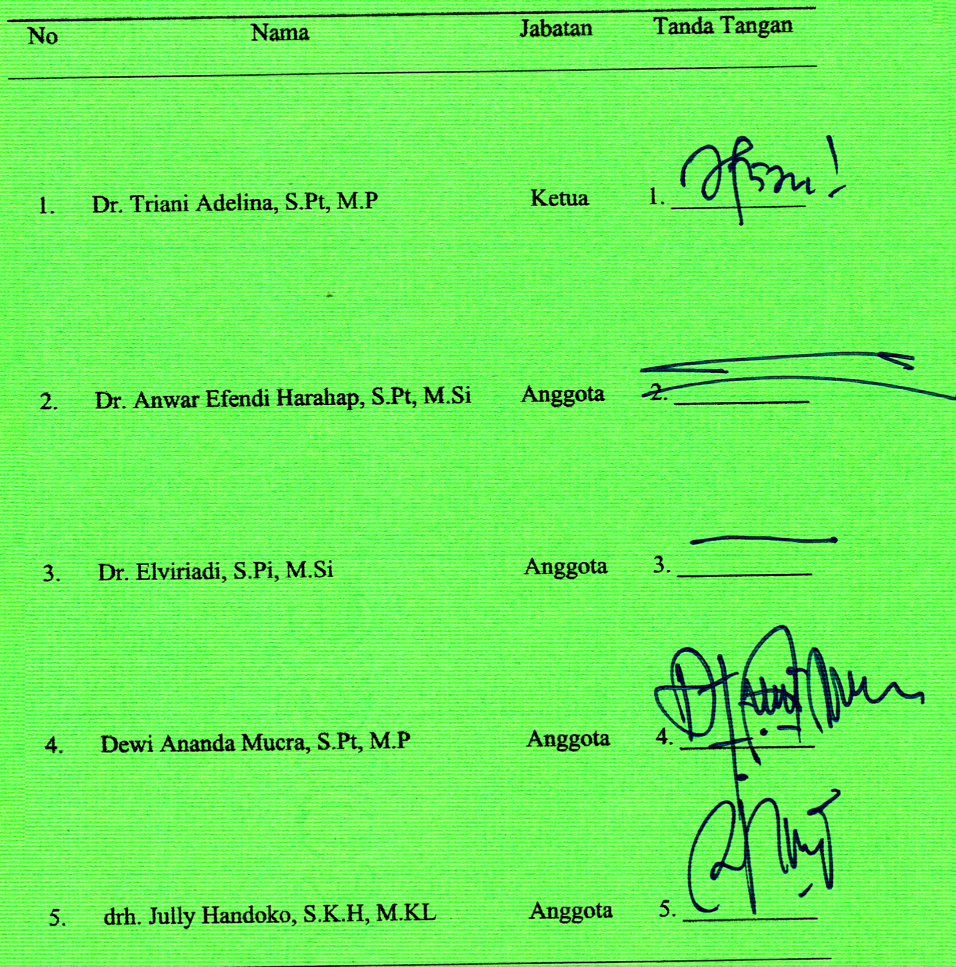 No Nama Jabatan Tanda Tangan
1. Dr. Triani Adelina, S.Pt, M.P Ketua 1.
2. Dr. Anwar Efendi Harahap, S.Pt, M.Si Anggota 2.
3. Dr. Elviriadi, S.Pi, M.Si Anggota 3.
4. Dewi Ananda Mucra, S.Pt, M.P Anggota 4.
5. drh. Jully Handoko, S.K.H, M.KL Anggota 5.